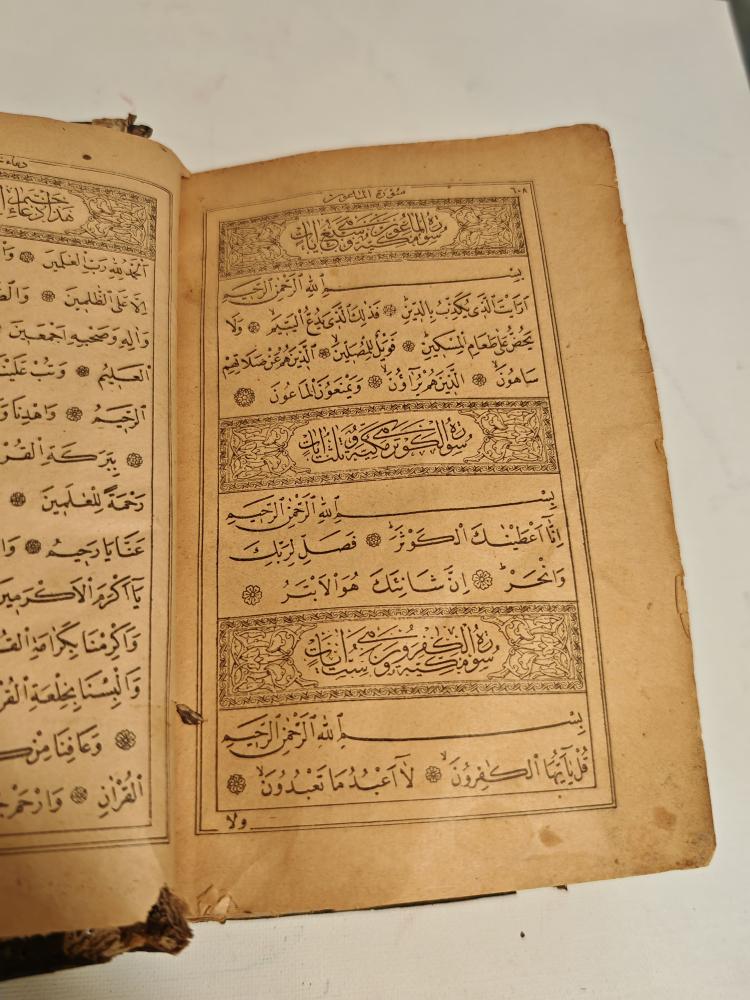 ٦٠٨
سورة الماعون
سورة الماعون مكية وهي سبع آيات
بِسْمِ اللهِ الرَّحْمٰنِ الرَّحِيمِ
اَرَاَيْتَ الَّذِى يُكَذِّبُ بِالدِّينِ ۞ فَذٰلِكَ الَّذِى يَدُعُّ الْيَتِيمَ ۞ وَلَا
يَحُضُّ عَلٰى طَعَامِ الْمِسْكِينِ ۞ فَوَيْلٌ لِلْمُصَلِّينَ ۞ اَلَّذِينَ هُمْ عَنْ صَلَاتِهِمْ
سَاهُونَ ۞ اَلَّذِينَ هُمْ يُرَآؤُنَ ۞ وَيَمْنَعُونَ الْمَاعُونَ ۞
سورة الكوثر مكية وهي ثلث آيات
بِسْمِ اللهِ الرَّحْمٰنِ الرَّحِيمِ
اِنَّا اَعْطَيْنَاكَ الْكَوْثَرَ ۞ فَصَلِّ لِرَبِّكَ
وَانْحَرْ ۞ اِنَّ شَانِئَكَ هُوَ الْاَبْتَرُ ۞
سورة الكفرون مكية وهي ست آيات
بِسْمِ اللهِ الرَّحْمٰنِ الرَّحِيمِ
قُلْ يَآ اَيُّهَا الْكَافِرُونَ ۞ لَآ اَعْبُدُ مَا تَعْبُدُونَ ۞
ولا
اَلْحَمْدُ لِلّٰهِ رَبِّ الْعَالَمِينَ ۞
اِلَّا عَلَى الظَّالِمِينَ ۞
وَاٰلِهِ وَصَحْبِهِ اَجْمَعِينَ
الْعَلِيمُ ۞ وَتُبْ عَلَيْنَا
الرَّحِيمُ ۞ وَاهْدِنَا
۞ بِبَرَكَةِ الْقُرْ
رَحْمَةً لِلْعَالَمِينَ ۞
عَنَّا يَا رَحِيمُ ۞
يَآ اَكْرَمَ الْاَكْرَمِينَ
وَاَكْرِمْنَا بِكَرَامَةِ الْقُ
وَاَلْبِسْنَا بِخِلْعَةِ الْقُرْ
۞ وَعَافِنَا مِنْ
الْقُرْاٰنِ ۞ وَارْحَمْ